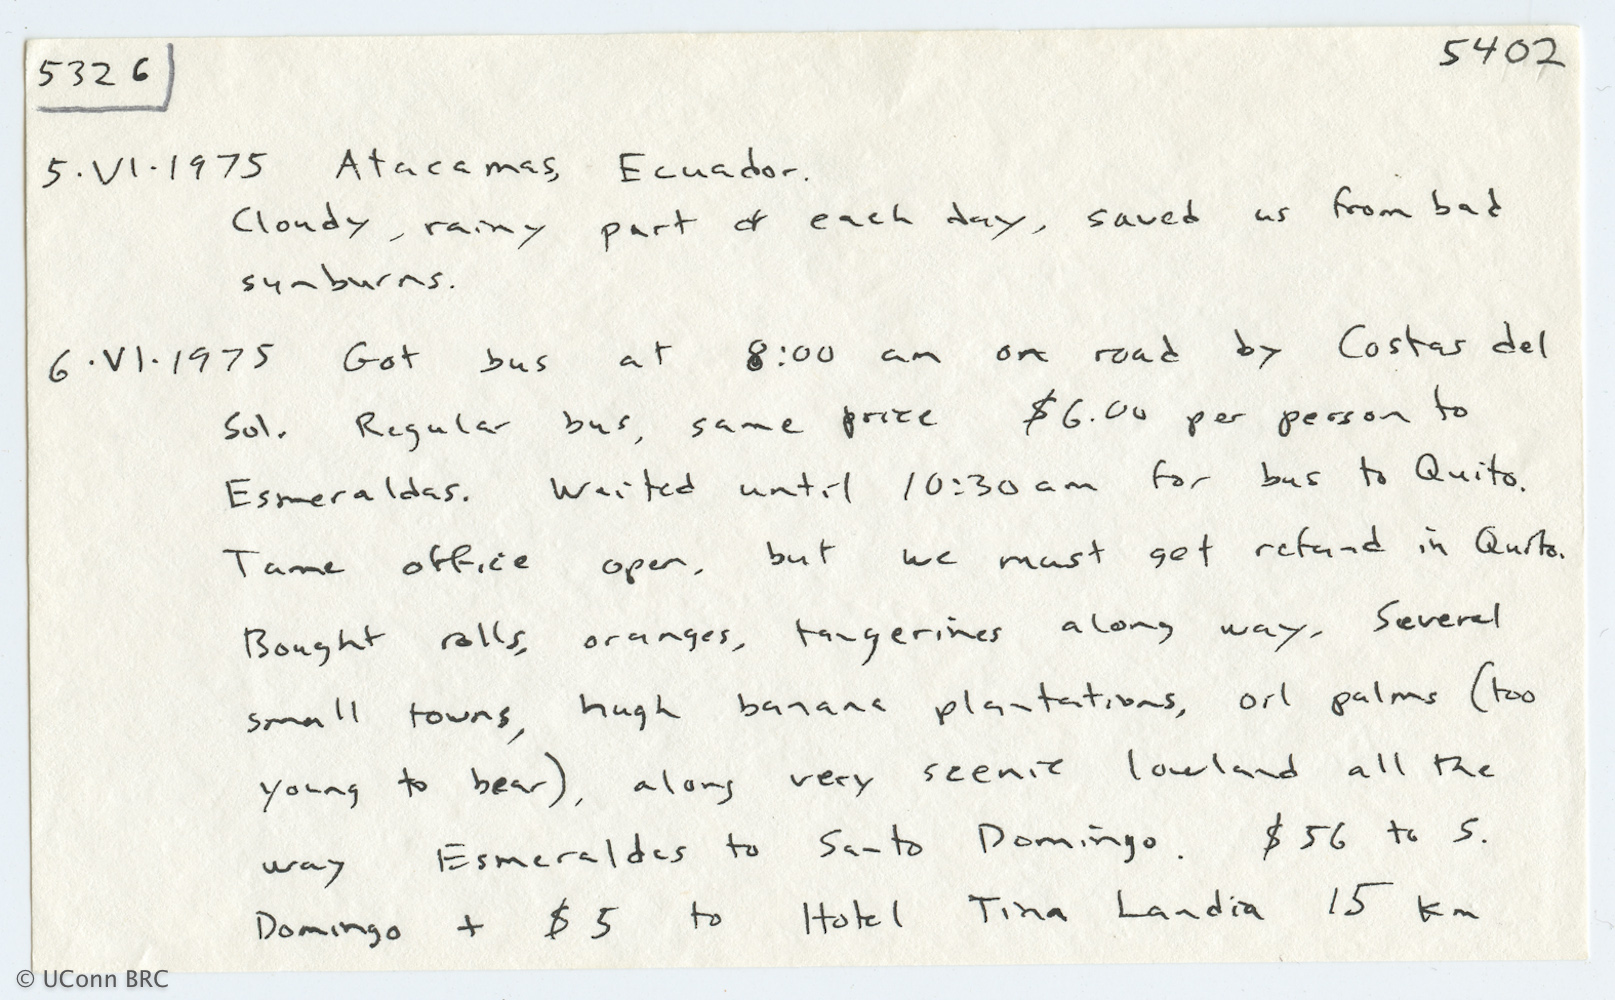 5326
5402
5.VI.1975 Atacamas, Ecuador.
Cloudy, rainy part of each day, saved us from bad
sunburns.
6.VI.1975 Got bus at 8:00 am on road by Costas del
Sol. Regular bus, same price $6.00 per person to
Esmeraldas. Waited until 10:30 am for bus to Quito.
Tame office open, but we must get refund in Quito.
Bought rolls, oranges, tangerines along way. Several
small towns, hugh banana plantations, oil palms (too
young to bear), along very scenic lowland all the
way Esmeraldas to Santo Domingo. $56 to S.
Domingo + $5 to Hotel Tina Landia 15 km
© UConn BRC